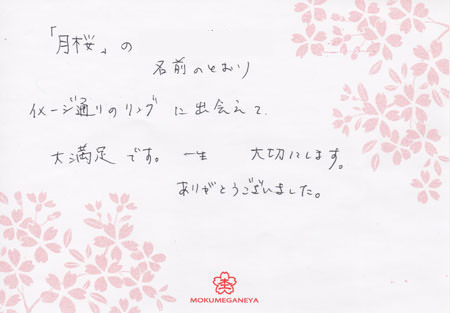 「月桜」の
名前のとおり
イメージ通りのリングに出会えて、
大満足です。一生 大切にします。
ありがとうございました。
MOKUMEGANEYA